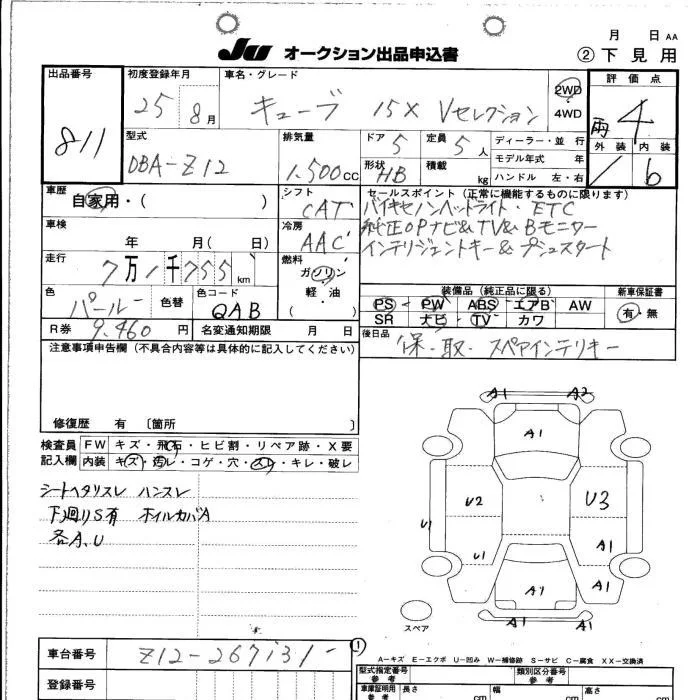 月 日 AA
JU オークション出品申込書
② 下見用
出品番号
811
初度登録年月
25 8月
車名・グレード
キューブ 15X Vセレクション
2WD
4WD
評価点
両 4
外装 内装
1 b
型式
DBA-Z12
排気量
1.500 cc
ドア 5
定員 5人
形状 HB
積載 kg
ディーラー・並行
モデル年式 年
ハンドル 左・右
車歴
自家用・( )
シフト
CAT
セールスポイント (正常に機能するものに限ります)
バイキセノンヘッドライト・ETC
純正OPナビ&TV&Bモニター
インテリジェントキー&プッシュスタート
車検
年 月( 日)
冷房
AAC
走行
7万1千755km
燃料
ガソリン
軽・油
( )
色
パール
色替
色コード
QAB
装備品 (純正品に限る)
PS PW ABS エアB AW
SR ナビ TV カワ
新車保証書
有・無
R券 9.460円
名変通知期限 月 日
後日品
保・取・スペアインテリキー
注意事項申告欄 (不具合内容等は具体的に記入してください)
修復歴 有 〔箇所 〕
検査員
記入欄
FW キズ・飛石・ヒビ割・リペア跡・X要
内装 キズ・汚レ・コゲ・穴・スレ・キレ・破レ
シートヘタリスレ ハンスレ
下廻りS有 ホイルカバA
各A、U
A1 A2
A1
U2 U3
U1
U1 A1
A1 A1
A1
スペア
車台番号
Z12-267131-
登録番号
①
A-キズ E-エクボ U-凹み W-補修跡 S-サビ C-腐食 XX-交換済
型式指定番号
参考
類別区分番号
参考
車庫証明用
参考
長さ cm
幅 cm
高さ cm